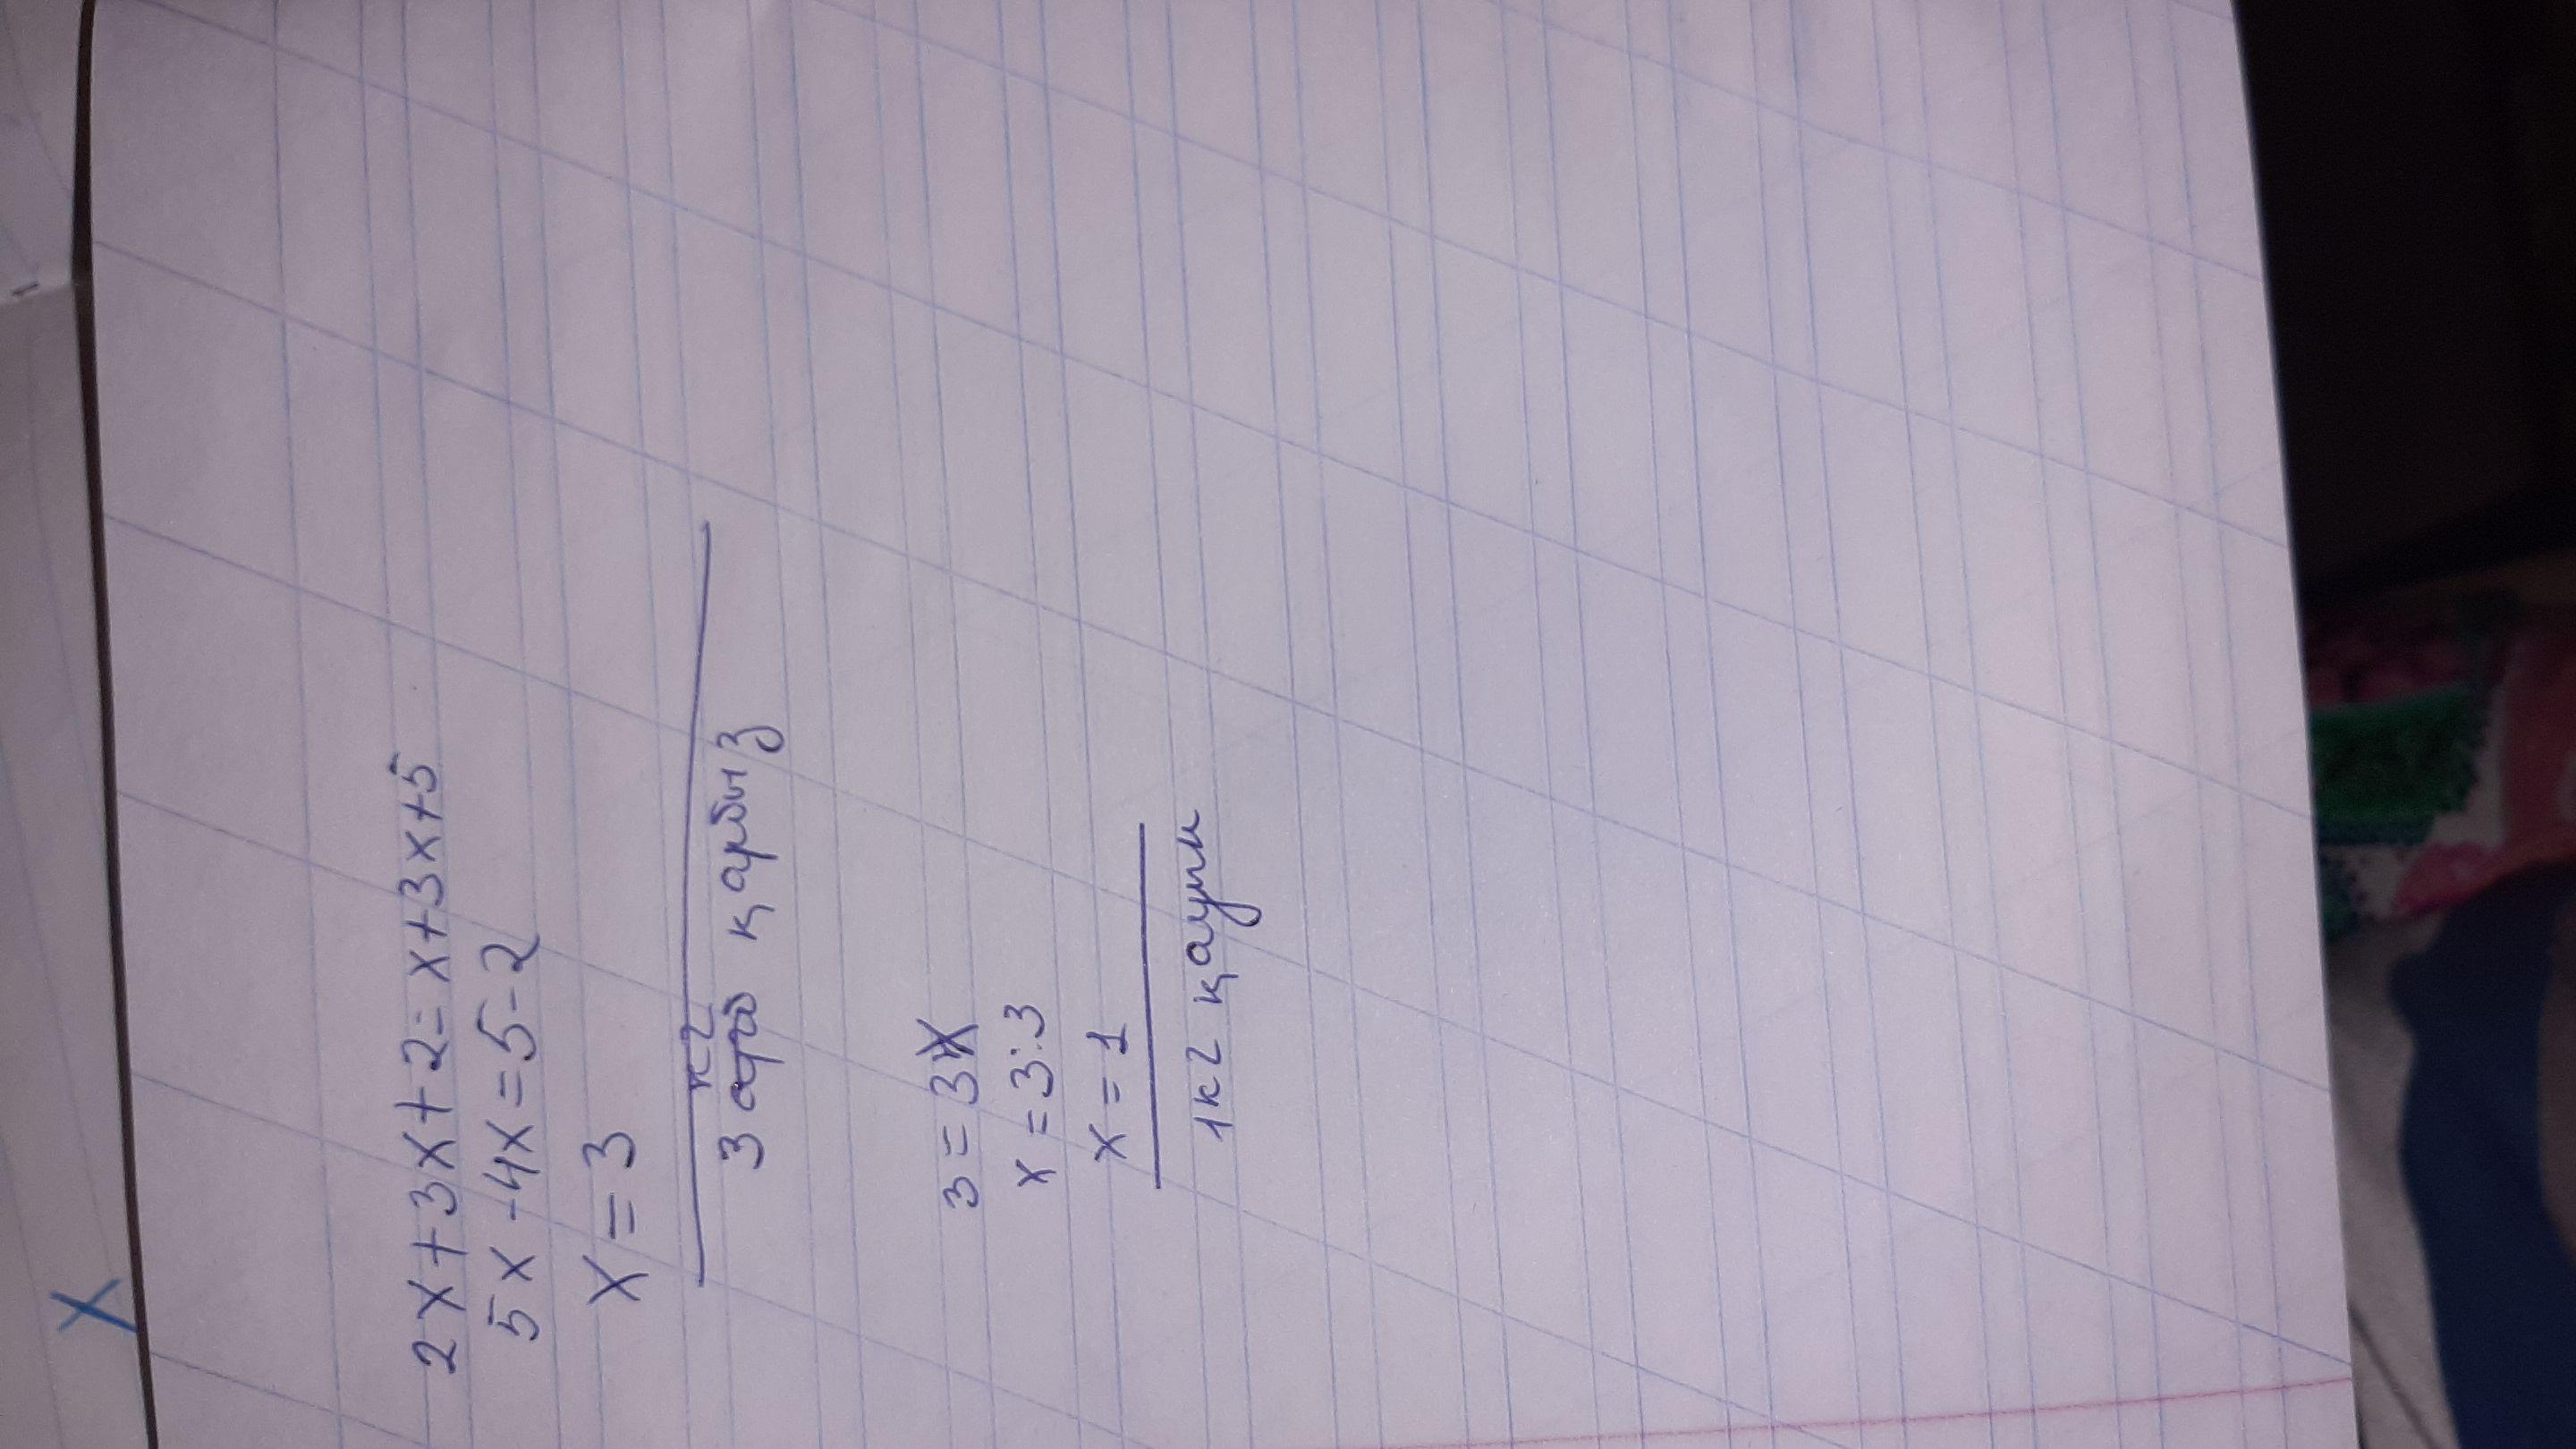 2x+3x+2=x+3x+5
5x-4x=5-2
x=3
кг
3 қарбыз
3=3x
x=3:3
x=1
1кг қауын